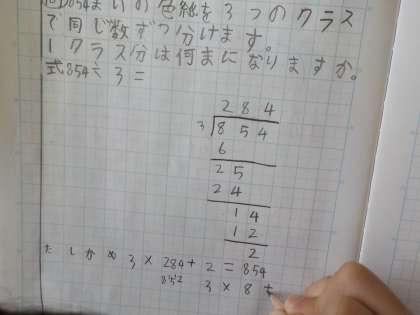 854まいの色紙を3つのクラス
で同じ数ずつ分けます。
1クラス分は何まになりますか。
式854÷3=
284
3 854
6
25
24
14
12
2
たしかめ 3×284+2=854
852
3×8